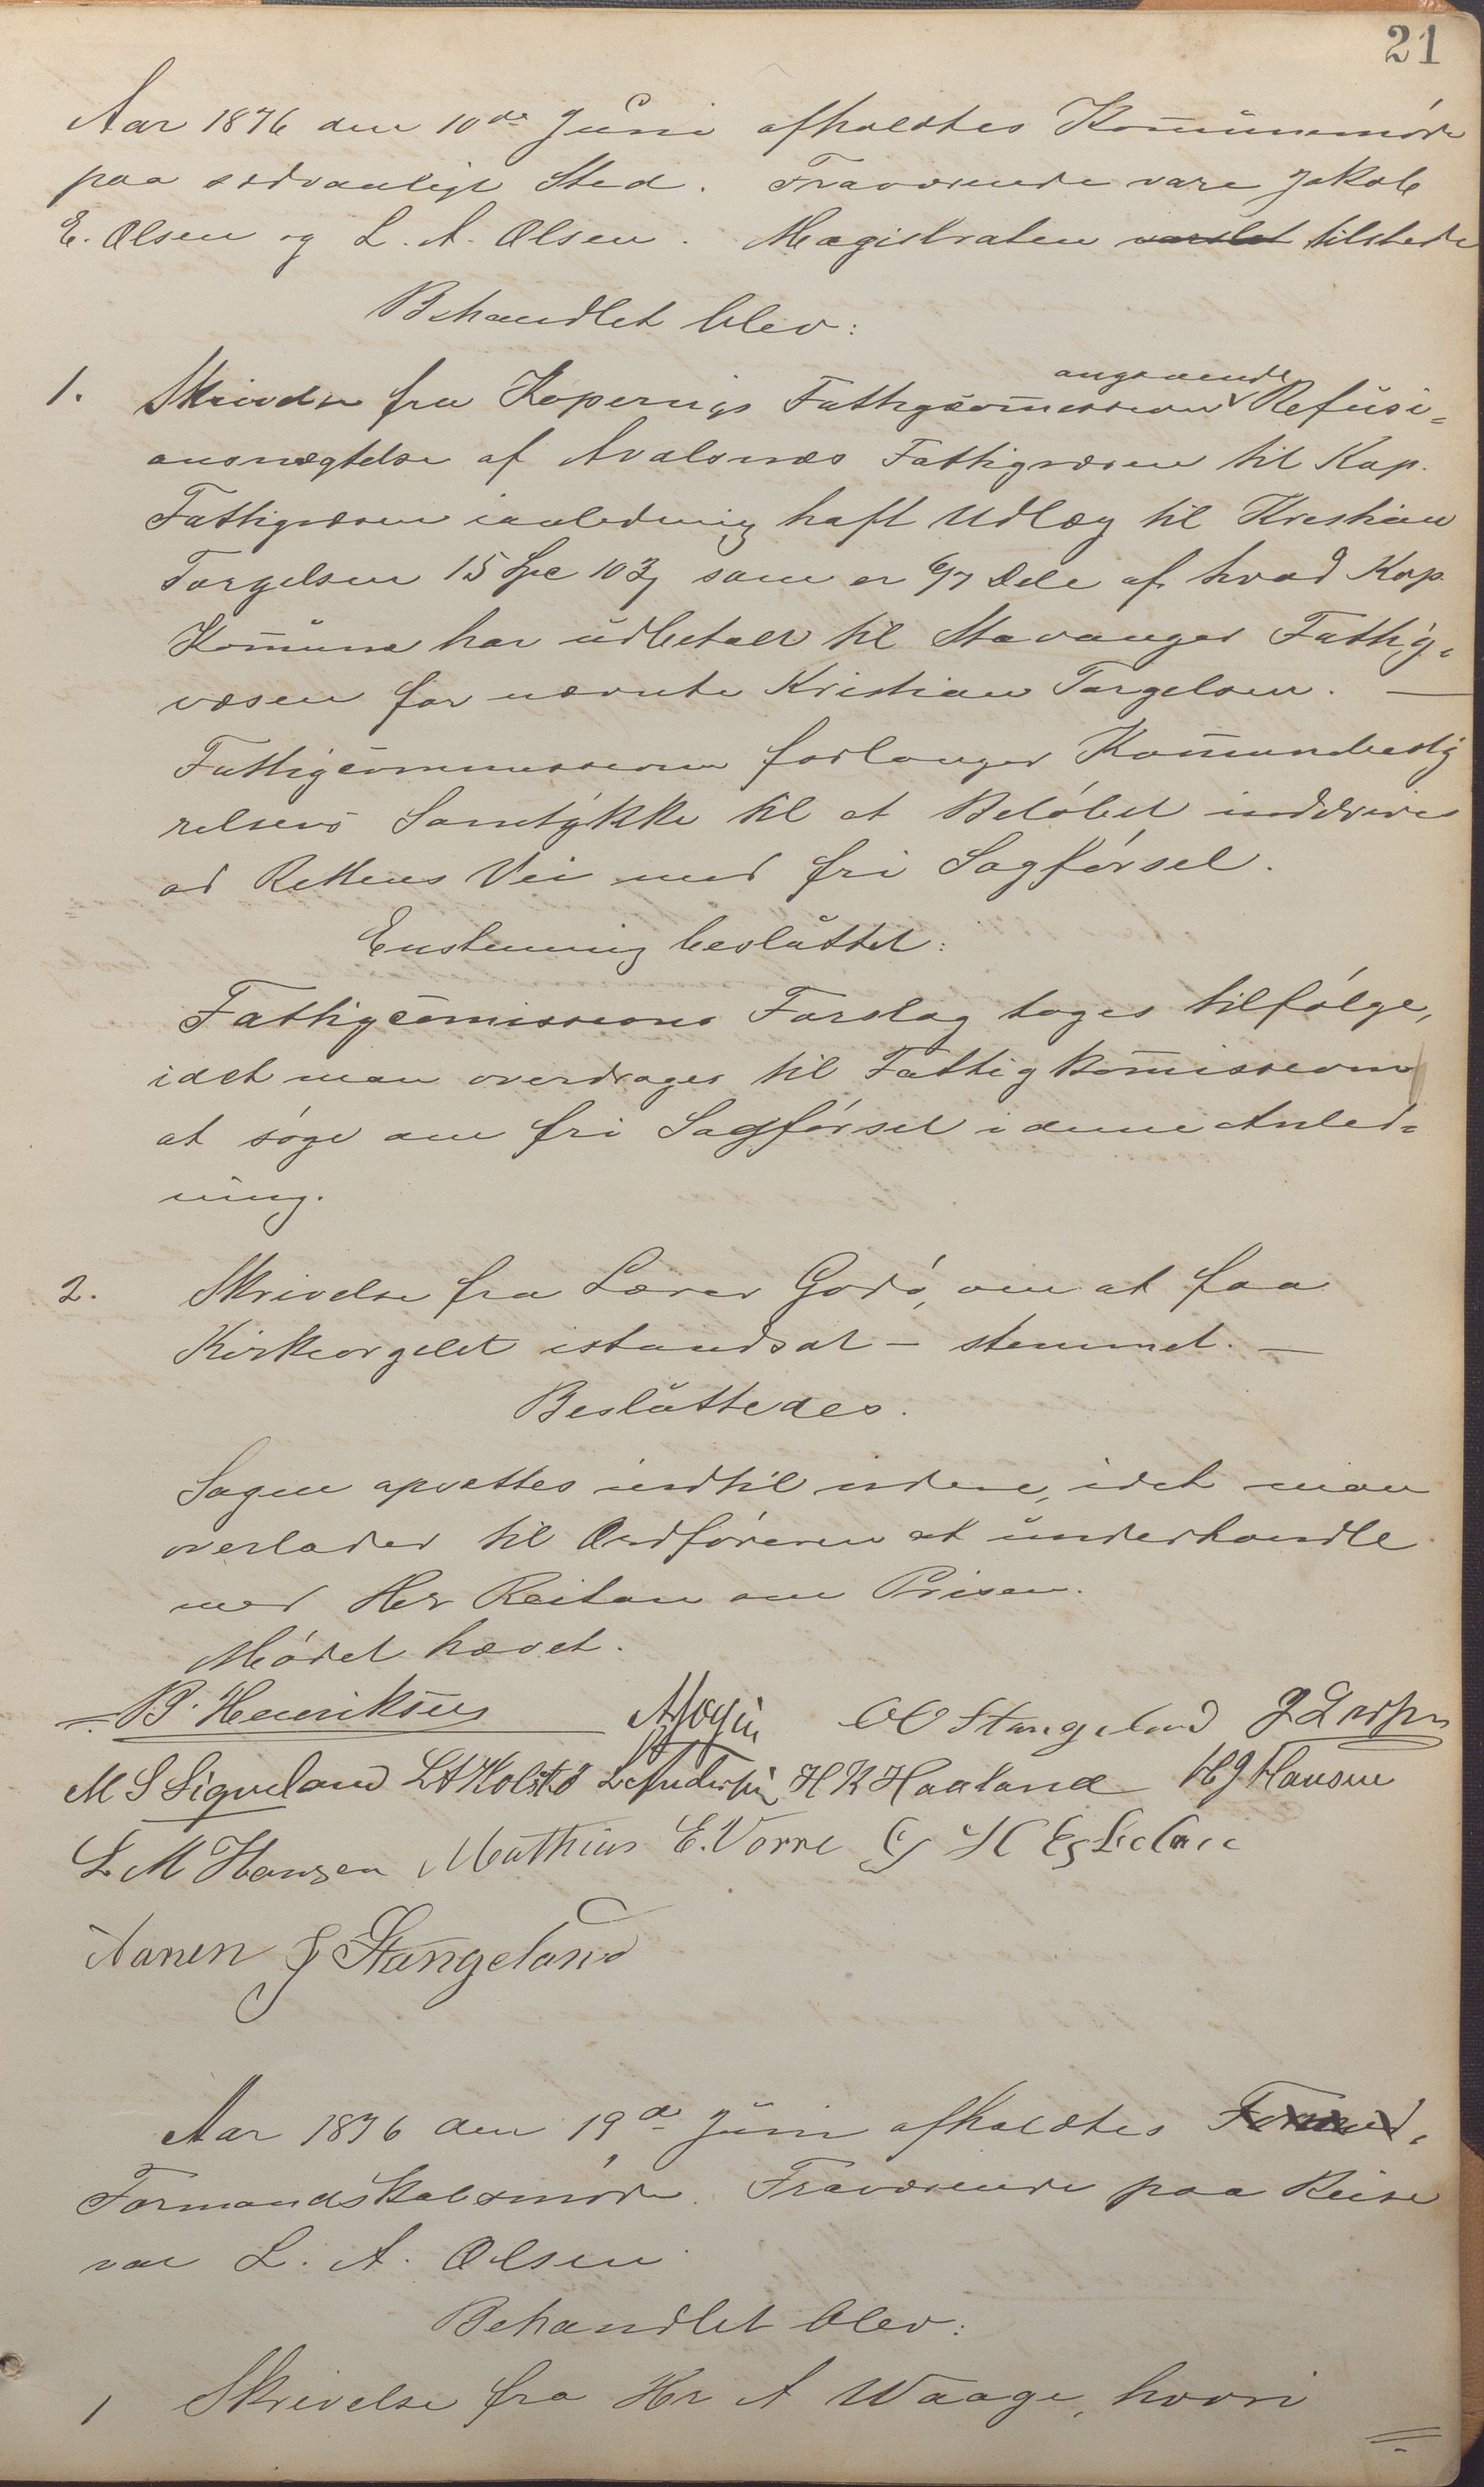 21
Aar 1876 den 10de Juni afholdtes Kommunemøde
paa sædvanligt Sted. Fraværende vare Jakob
E. Olsen og L. A. Olsen. Magistraten varslet tilstede
Behandlet blev:
1. Skrivelse fra Kopervigs Fattigcommission angaaende Refusi-
onsnægtelse af Avalsnæs Fattigvæsen til Kop.
Fattigvæsen ianledning haft Udlæg til Kristian
Torgelsen 15 Spe 103 som er 6/7 Dele af hvad Kop.
Kommune har udbetalt til Stavanger Fattig-
væsen for nævnte Kristian Torgelsen. —
Fattigcommissionen forlanger Kommunebesty
relsens Samtykke til at Beløbet inddrives
ad Rettens Vei med fri Sagførsel.
Enstemmig besluttet:
Fattigcommissions Forslag toges tilfølge,
idet man overdrager til Fattigkommissionen
at søge om fri Sagførsel i denne Anled-
ning.
2. Skrivelse fra Lærer Godø, om at faa
Kirkeorgelet istandsat – stemmet. —
Besluttedes.
Sagen udsættes indtil videre, idet man
overlader til Ordføreren at underhandle
med Hr Reitan om Prisen.
Mødet hævet.
B. Henriksen OO Stangeland
M S Siqveland LA Kolstø L Andersen H R Haaland HJ Hansen
L. M Hansen Mathias E. Vorre G H Eskeland
Aanen J Stangeland
Aar 1876 den 19de Juni afholdtes Formd-
Formandskabsmøde. Fraværende paa Reise
var L. A. Olsen
Behandlet blev:
1 Skrivelse fra Hr A Waage, hvori